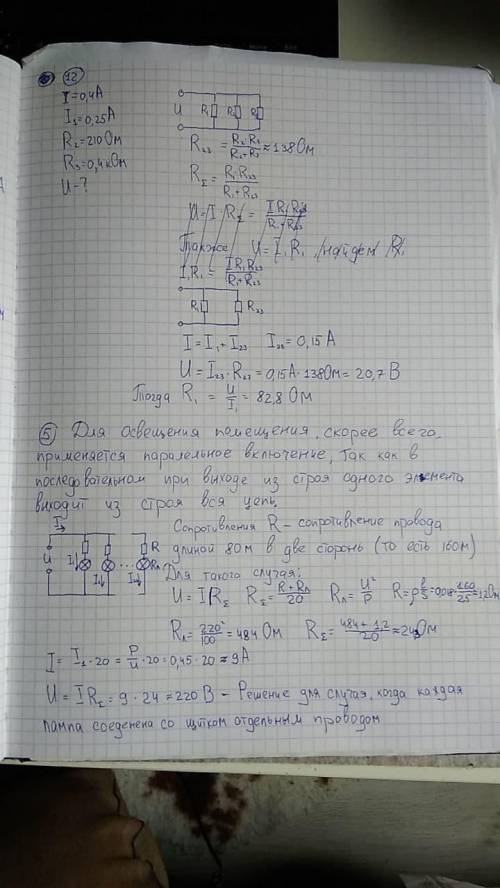 12
I = 0,4 А
I₁ = 0,25 А
R₂ = 210 Ом
R₃ = 0,4 кОм
U - ?
U R₁ R₂ R₃
R₂₃ = R₂·R₃ / R₂+R₃ ≈ 138 Ом
R_Σ = R₁·R₂₃ / R₁+R₂₃
U = I·R_Σ = I R₁ R₂₃ / R₁+R₂₃
Также U = I₁R₁, найдем R₁
I₁R₁ = I R₁ R₂₃ / R₁+R₂₃
R₁ R₂₃
I = I₁ + I₂₃ I₂₃ = 0,15 А
U = I₂₃·R₂₃ = 0,15А·138Ом = 20,7 В
Тогда R₁ = U / I₁ = 82,8 Ом
5 Для освещения помещения, скорее всего,
применяется паралельное включение, так как в
последовательном при выходе из строя одного элемента
выходит из строя вся цепь.
I U I₁ R Rл
Сопротивления R – сопротивление провода
длиной 80м в две стороны (то есть 160м)
Для такого случая:
U = I R_Σ R_Σ = R + Rл / 20 Rл = U² / P R = ρ l / S = 160 / 25 = 1,2 Ом
Rл = 220² / 100 = 484 Ом R_Σ = 484 + 1,2 / 20 ≈ 24 Ом
I = I₁ · 20 = P / U · 20 = 0,45 · 20 ≈ 9 А
U = I R_Σ = 9 · 24 = 220 В – Решение для случая, когда каждая
лампа соеденена со щитком отдельным проводом